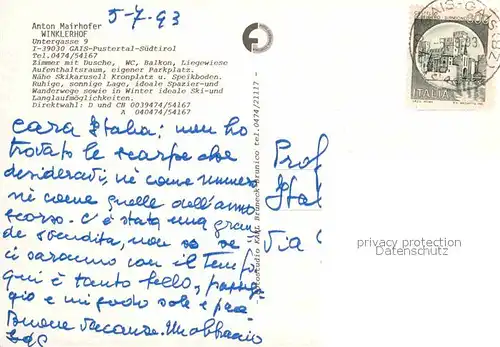 5-7.93
Anton Mairhofer
WINKLERHOF
Untergasse 9
I-39030 GAIS-Pustertal-Südtirol
Tel.0474/54167
Zimmer mit Dusche, WC, Balkon, Liegewiese
Aufenthaltsraum, eigener Parkplatz.
Nähe Skikarusell Kronplatz u. Speikboden.
Ruhige, sonnige Lage, ideale Spazier-und
Wanderwege sowie in Winter ideale Ski-und
Langlaufmöglichkeiten.
Direktwahl: D und CB 0039474/54167
A 040474/54167
cara Italia: non ho
trovato le scarpe che
desideravi, né come numero
né come quelle dell'anno
scorso. C'è stata una gran
de svendita, non so se
ci saranno con il tempo
qui è tanto bello, passeg
gio e mi godo sole e pace
Buone vacanze. Un abbraccio
KARL Bruneck-Brunico tel.0474/21117 -
GAIS
ITALIA
Prof
Ital
Via
privacy protection
Datenschutz